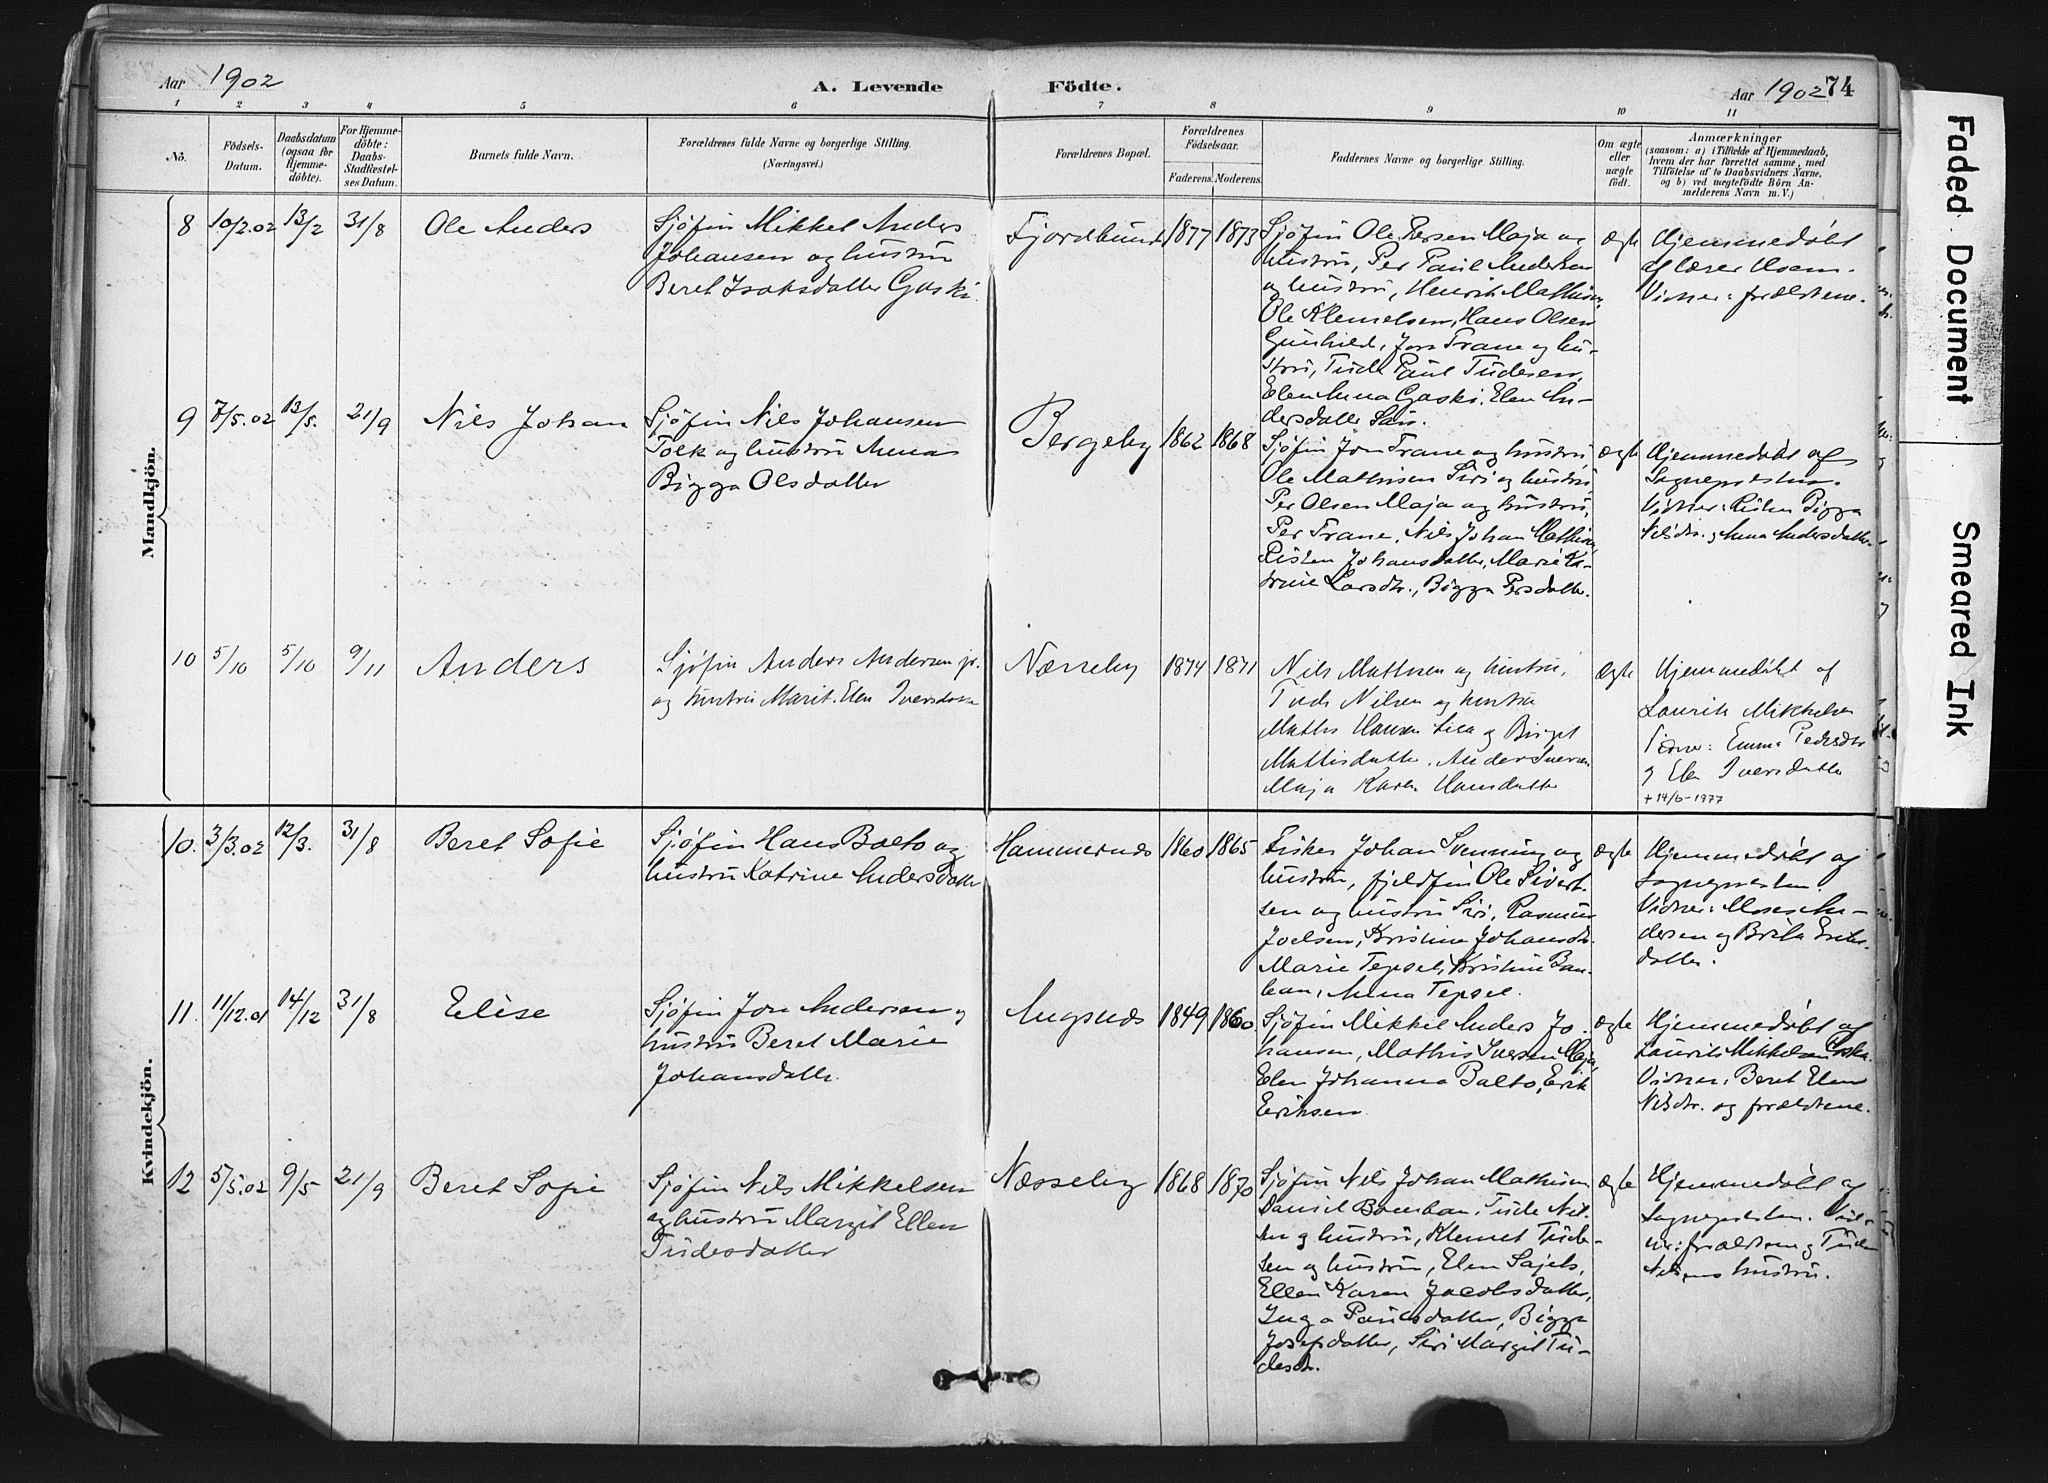 Aar 1902
A. Levende Födte.
Aar 1902 74
1 2 3 4 5 6 7 8 9 10 11
No.
Födsels-
Datum.
Daabsdatum
(ogsaa for
Hjemme-
döbte).
For Hjemme-
döbte:
Daabs-
Stadfæstel-
ses Datum.
Barnets fulde Navn.
Forældrenes fulde Navne og borgerlige Stilling.
(Næringsvei.)
Forældrenes Bopæl.
Forældrenes
Födselsaar.
Faderens. Moderens.
Faddernes Navne og borgerlige Stilling.
Om ægte
eller
uægte
födt.
Anmærkninger
(saasom: a) i Tilfælde af Hjemmedaab,
hvem der har forrettet samme, med
Tilföielse af to Daabsvidners Navne,
og b) ved uægtefödte Börn An-
melderens Navn m. V.)
Mandkjön.
8 10/2.02 13/2 31/8 Ole Anders
Sjøfin Mikkel Anders
Johansen og hustru
Beret Isaksdatter Gaski.
Fjordbund 1877 1873
Sjøfin Ole Persen Maja og
hustru, Per Paul Andersen
og hustru, Henrik Mathisen,
Ole Klemetsen, Hans Olsen
Gunhild, Jon Trane og hu-
stru, Tude Paul Tudesen,
Elen Anna Gaski, Elen An-
dersdatter
ægte
Hjemmedøbt
af lærer
Vidner: forældrene.
9 7/5.02 13/5. 21/9 Nils Johan
Sjøfin Nils Johansen
Tolk og hustru Anna
Bigga Olsdatter
Bergeby 1862 1868
Sjøfin Jon Trane og hustru
Ole Mathisen Siri og hustru
Per Olsen Maja og hustru,
Per Trane, Nils Johan Mathisen,
Risten Johansdatter, Marie Ka-
trine Larsdtr., Bigga Persdatter.
ægte
Hjemmedøbt af
Sognepresten.
Vidner: Risten Bigga
Nilsdtr. og Anna Andersdatter.
10 5/10 5/10 9/11 Anders
Sjøfin Anders Andersen jr.
og hustru Marit Elen Iversdatter
Næsseby 1874 1871
Nils Mathisen og hustru,
Tude Nilsen og hustru
Mathis Hansen og Birget
Mathisdatter. Anders Iversen
Maja Karen Hansdatter
ægte
Hjemmedøbt af
Laurits Mikkelsen
Emma Pedersdtr
og Elen Iversdatter
+ 14/6-1977
Kvindekjön.
10. 3/3.02 12/3. 31/8 Beret Sofie
Sjøfin Hans Balto og
hustru Katrine Andersdatter
Hammernæs 1860 1865
Fisker Johan Svenning og
hustru, fjeldfin Ole Sivert-
sen og hustru Siri, Rasmus
Joelsen, Kristine Johansdtr.
Marie Tepsel, Kristine Ban-
ban, Anna Tepsel.
ægte
Hjemmedøbt af
sognepresten
Vidner: Moses An-
dersen og Brita Eriks-
datter.
11. 11/12.01 14/12 31/8 Elise
Sjøfin Jon Andersen og
hustru Beret Marie
Johansdatter
Angsnæs 1849 1860.
Sjøfin Mikkel Anders Jo-
hansen, Mathis Iversen Maja,
Elen Johanna Balto, Erik
Eriksen
ægte
Hjemmedøbt af
Laurits Mikkelsen
Vidner: Beret Elen
Nilsdtr. og forældrene.
12 5/5.02 9/5 21/9 Beret Sofie
Sjøfin Nils Mikkelsen
og hustru Margit Ellen
Tudesdatter
Næsseby 1868 1870
Sjøfin Nils Johan Mathisen
Daniel Banban, Tude Nil-
sen og hustru, Klemet Tude-
sen og hustru, Elen Sajets,
Ellen Karen Jacobsdatter,
Inga Paulsdatter, Bigga
Josefsdatter, Siri Margit Tu-
desdtr.
ægte
Hjemmedøbt af
Sognepresten. Vid-
ner: forældrene og Tude
Nilsens hustru.
Faded Document
Smeared Ink